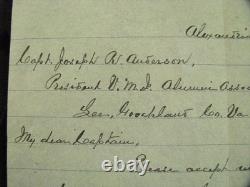 Alexandri
Capt. Joseph R. Anderson,
President V.M.I. Alumni Assoc
Lee, Goochland Co. Va
My dear Captain,
Please accept